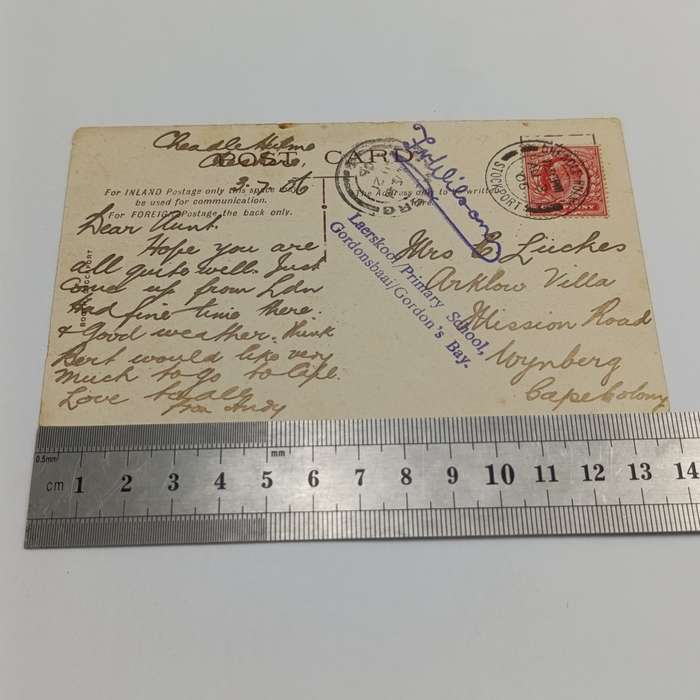 Cheadle Hulme
POST CARD
3.7.06
For INLAND Postage only this space
be used for communication.
For FOREIGN Postage the back only.
The Address only to
written
here.
Dear Aunt.
Hope you are
all quite well. Just
come up from Ldn
Had fine time there.
& Good weather. Think
Bert would like very
much to go to
Love to all
from Andy
Mrs E Lückes
Arklow Villa
Mission Road
Wynberg
Cape Colony
Laerskool/Primary School,
Gordonsbaai/Gordon's Bay.
STOCKPORT
0.5mm
mm
cm 1 2 3 4 5 6 7 8 9 10 11 12 13 14